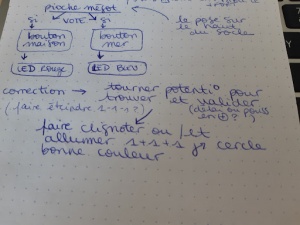 pioche mégot
si VOTE si
le pose sur
le haut
du socle
bouton maison
bouton mer
LED ROUGE
LED BLEU
correction → tourner potentio pour
trouver et valider
(faire éteindre 1-1-1?) (délai ou pouss
en ⊕ ?)
faire clignoter ou/et
allumer 1+1+1 cercle
bonne couleur